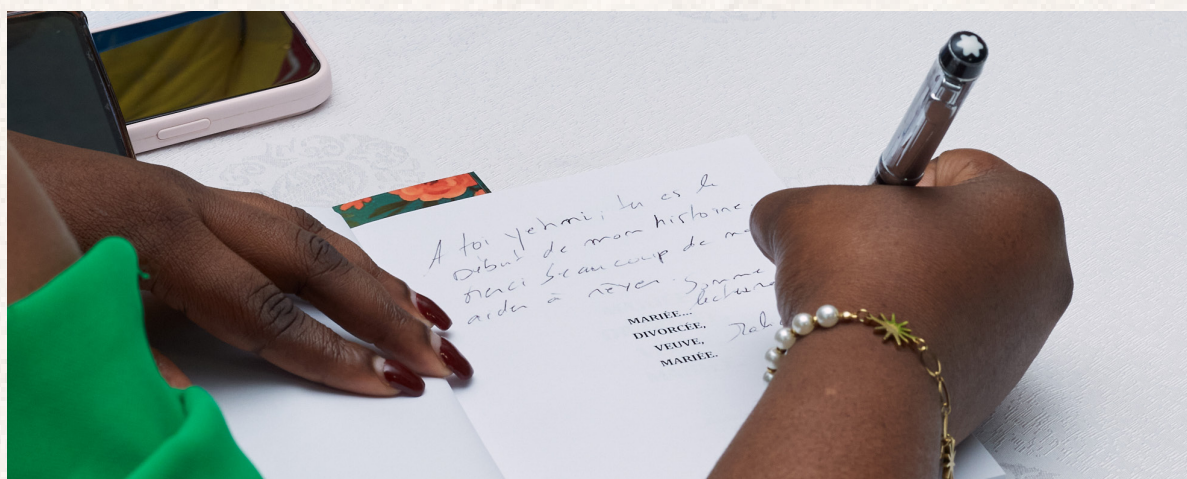 A toi yehmi, tu es le
Début de mon histoire.
merci beaucoup de m
aider à rêver.
lecture
MARIÉE...
DIVORCÉE,
VEUVE,
MARIÉE.